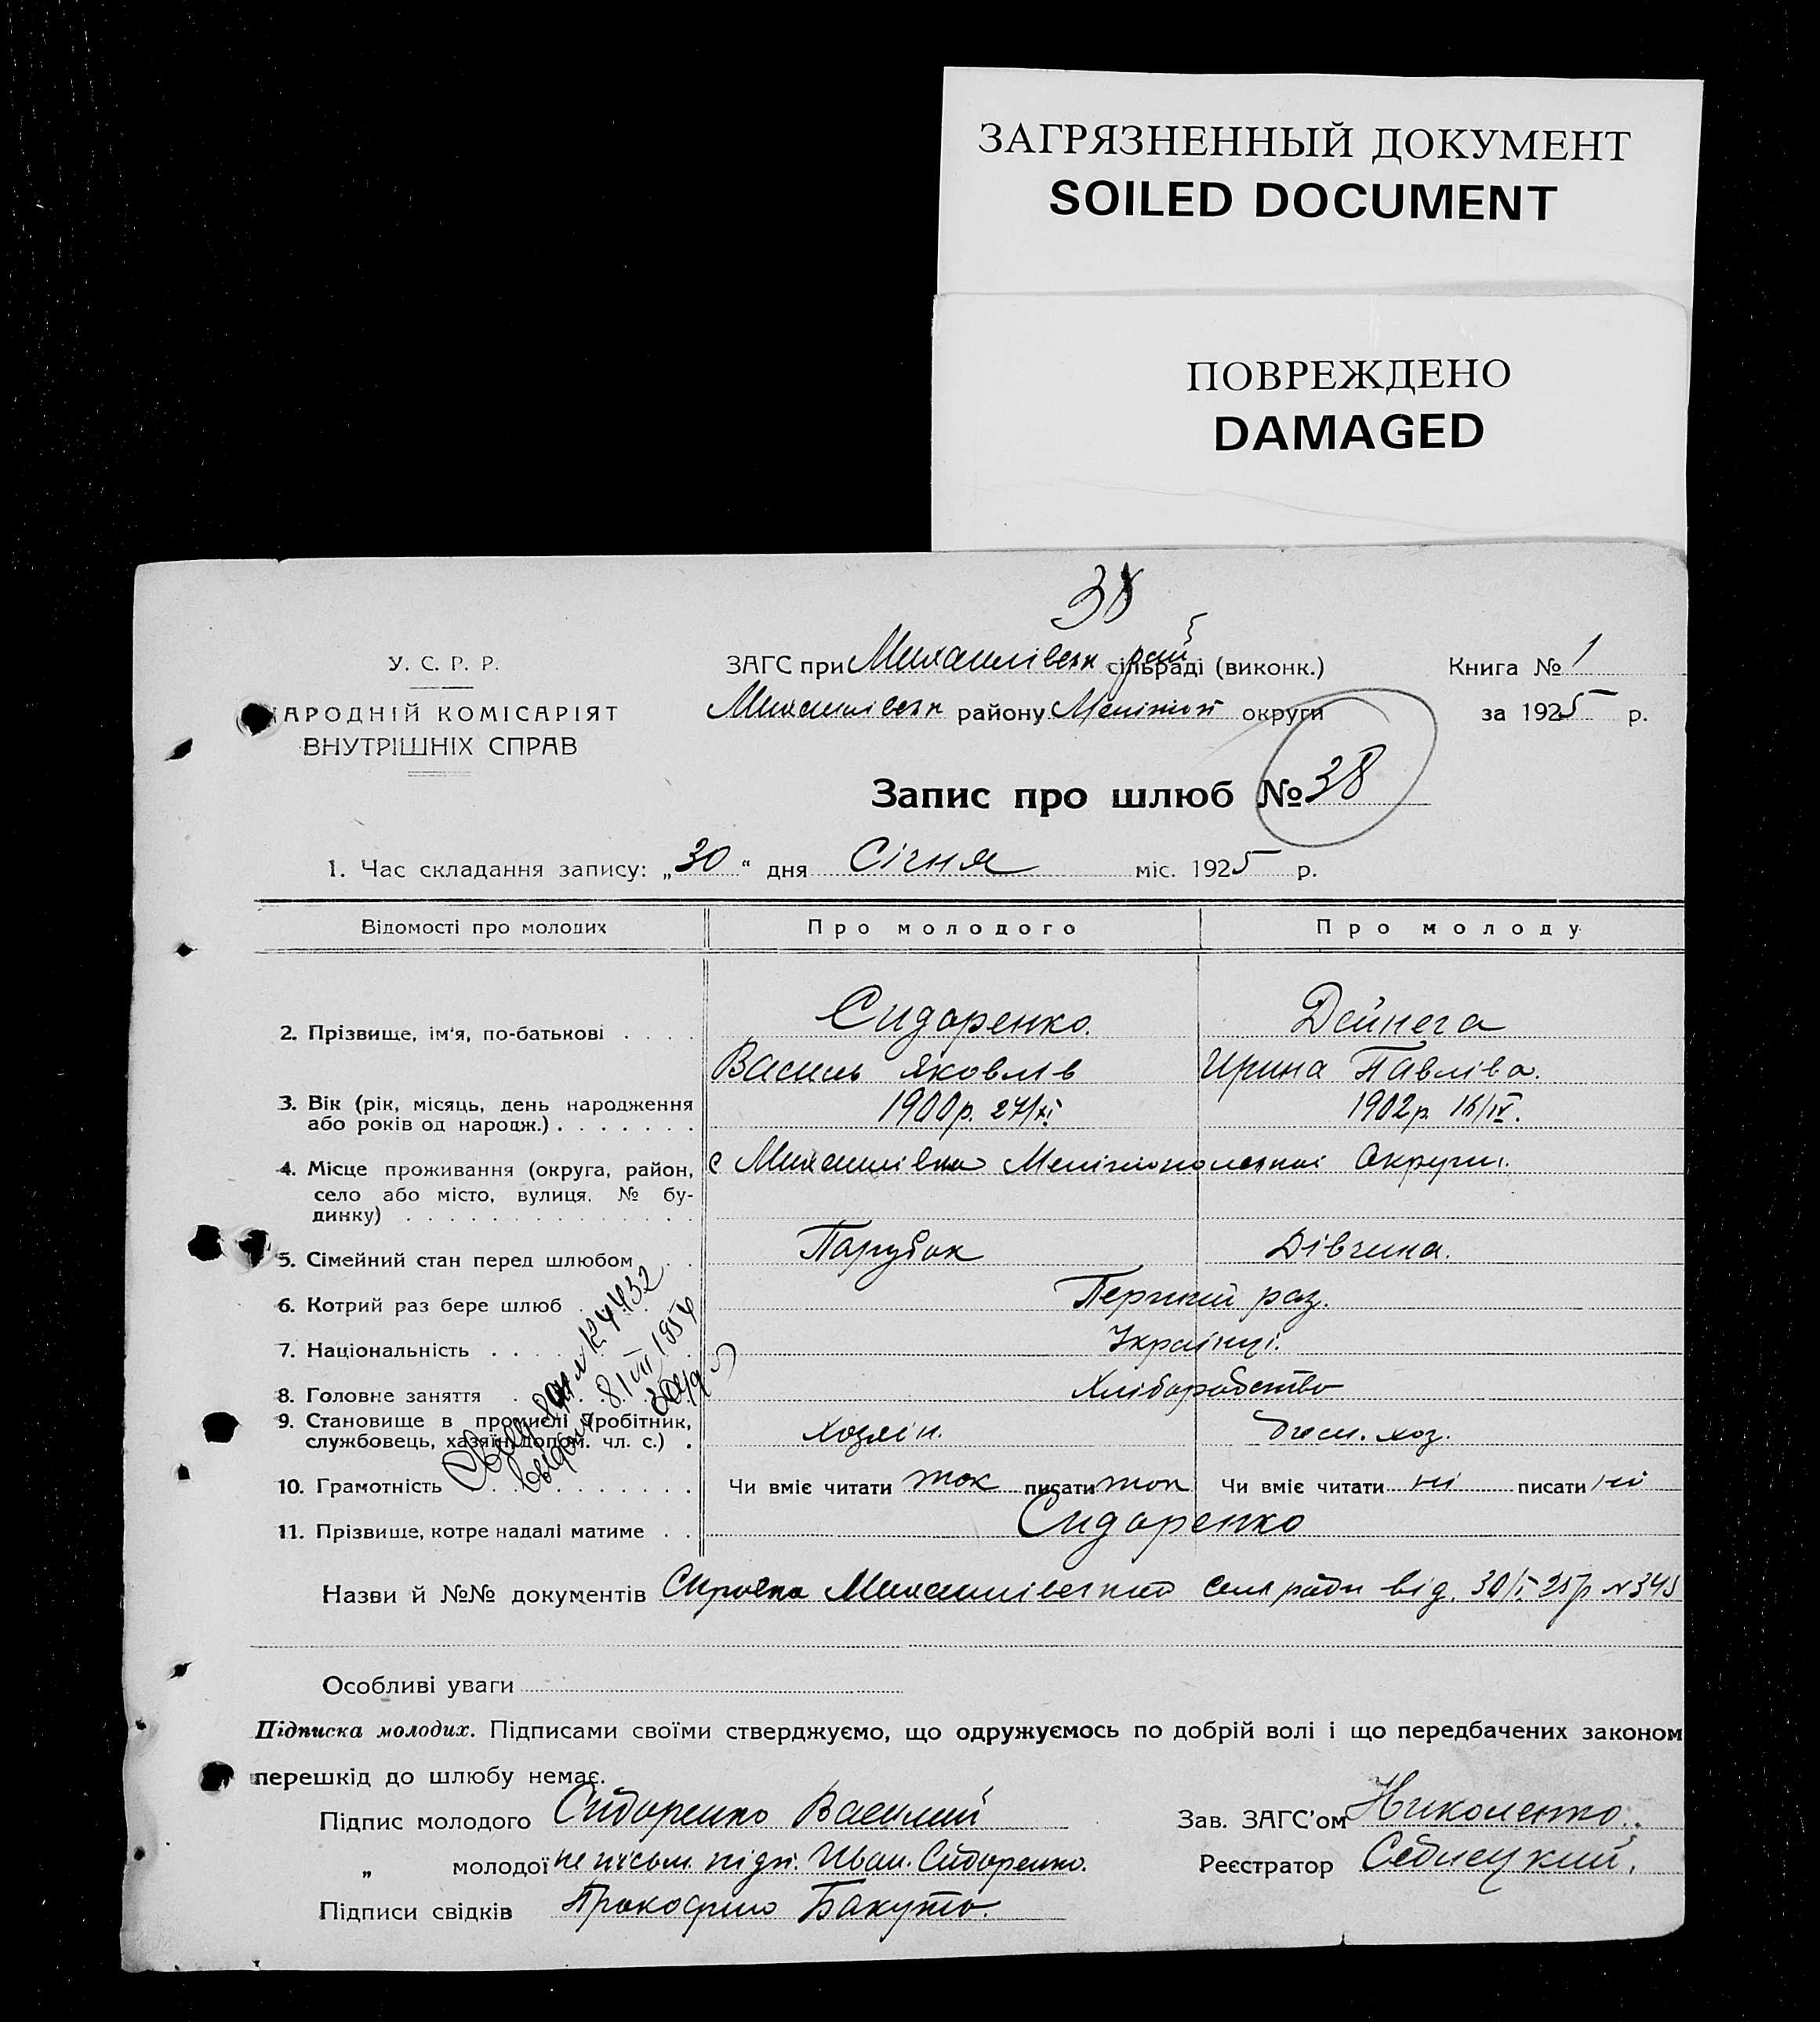 ЗАГРЯЗНЕННЫЙ ДОКУМЕНТ
SOILED DOCUMENT
ПОВРЕЖДЕНО
DAMAGED
38
У. С. Р. Р.
АРОДНІЙ КОМІСАРІЯТ
ВНУТРІШНІХ СПРАВ
ЗАГС при Михайлівськ. рай сільраді (виконк.)
Михайлівськ району Меліт. округи
Книга № 1
за 1925 р.
Запис про шлюб № 38
1. Час складання запису: „30“ дня Січня міс. 1925 р.
Відомості про молодих Про молодого Про молоду
2. Прізвище, ім'я, по-батькові . . . . Сидоренко. Дейнега
Василь Яковлів Ирина Павліва.
3. Вік (рік, місяць, день народження 1900 р. 27/XI 1902 р. 16/IV.
або років од народж.) . . . . . . .
4. Місце проживання (округа, район, с Михайлівка Мелітопольської Округи.
село або місто, вулиця. № бу-
динку) . . . . . . . . . . . . . .
5. Сімейний стан перед шлюбом . . Парубок Дівчина.
6. Котрий раз бере шлюб Перший раз.
7. Національність . . . . Українці.
8. Головне заняття Хліборобство
9. Становище в промислі (робітник,
службовець, хазяїн, допом. чл. с.) . хозяін. дом. хоз.
10. Грамотність Чи вміє читати так писати так Чи вміє читати ні писати ні
11. Прізвище, котре надалі матиме . . Сидоренко
8 VII 1954
Назви й №№ документів Справка Михайлівської сельради від. 30/I 25р № 345
Особливі уваги
Підписка молодих. Підписами своїми стверджуємо, що одружуємось по добрій волі і що передбачених законом
перешкід до шлюбу немає.
Підпис молодого Сидоренко Василий
„ молодої не письм. підп. Иван. Сидоренко.
Підписи свідків Прокофий Бакута.
Зав. ЗАГС'ом Николенко.
Реєстратор Седлецкий.